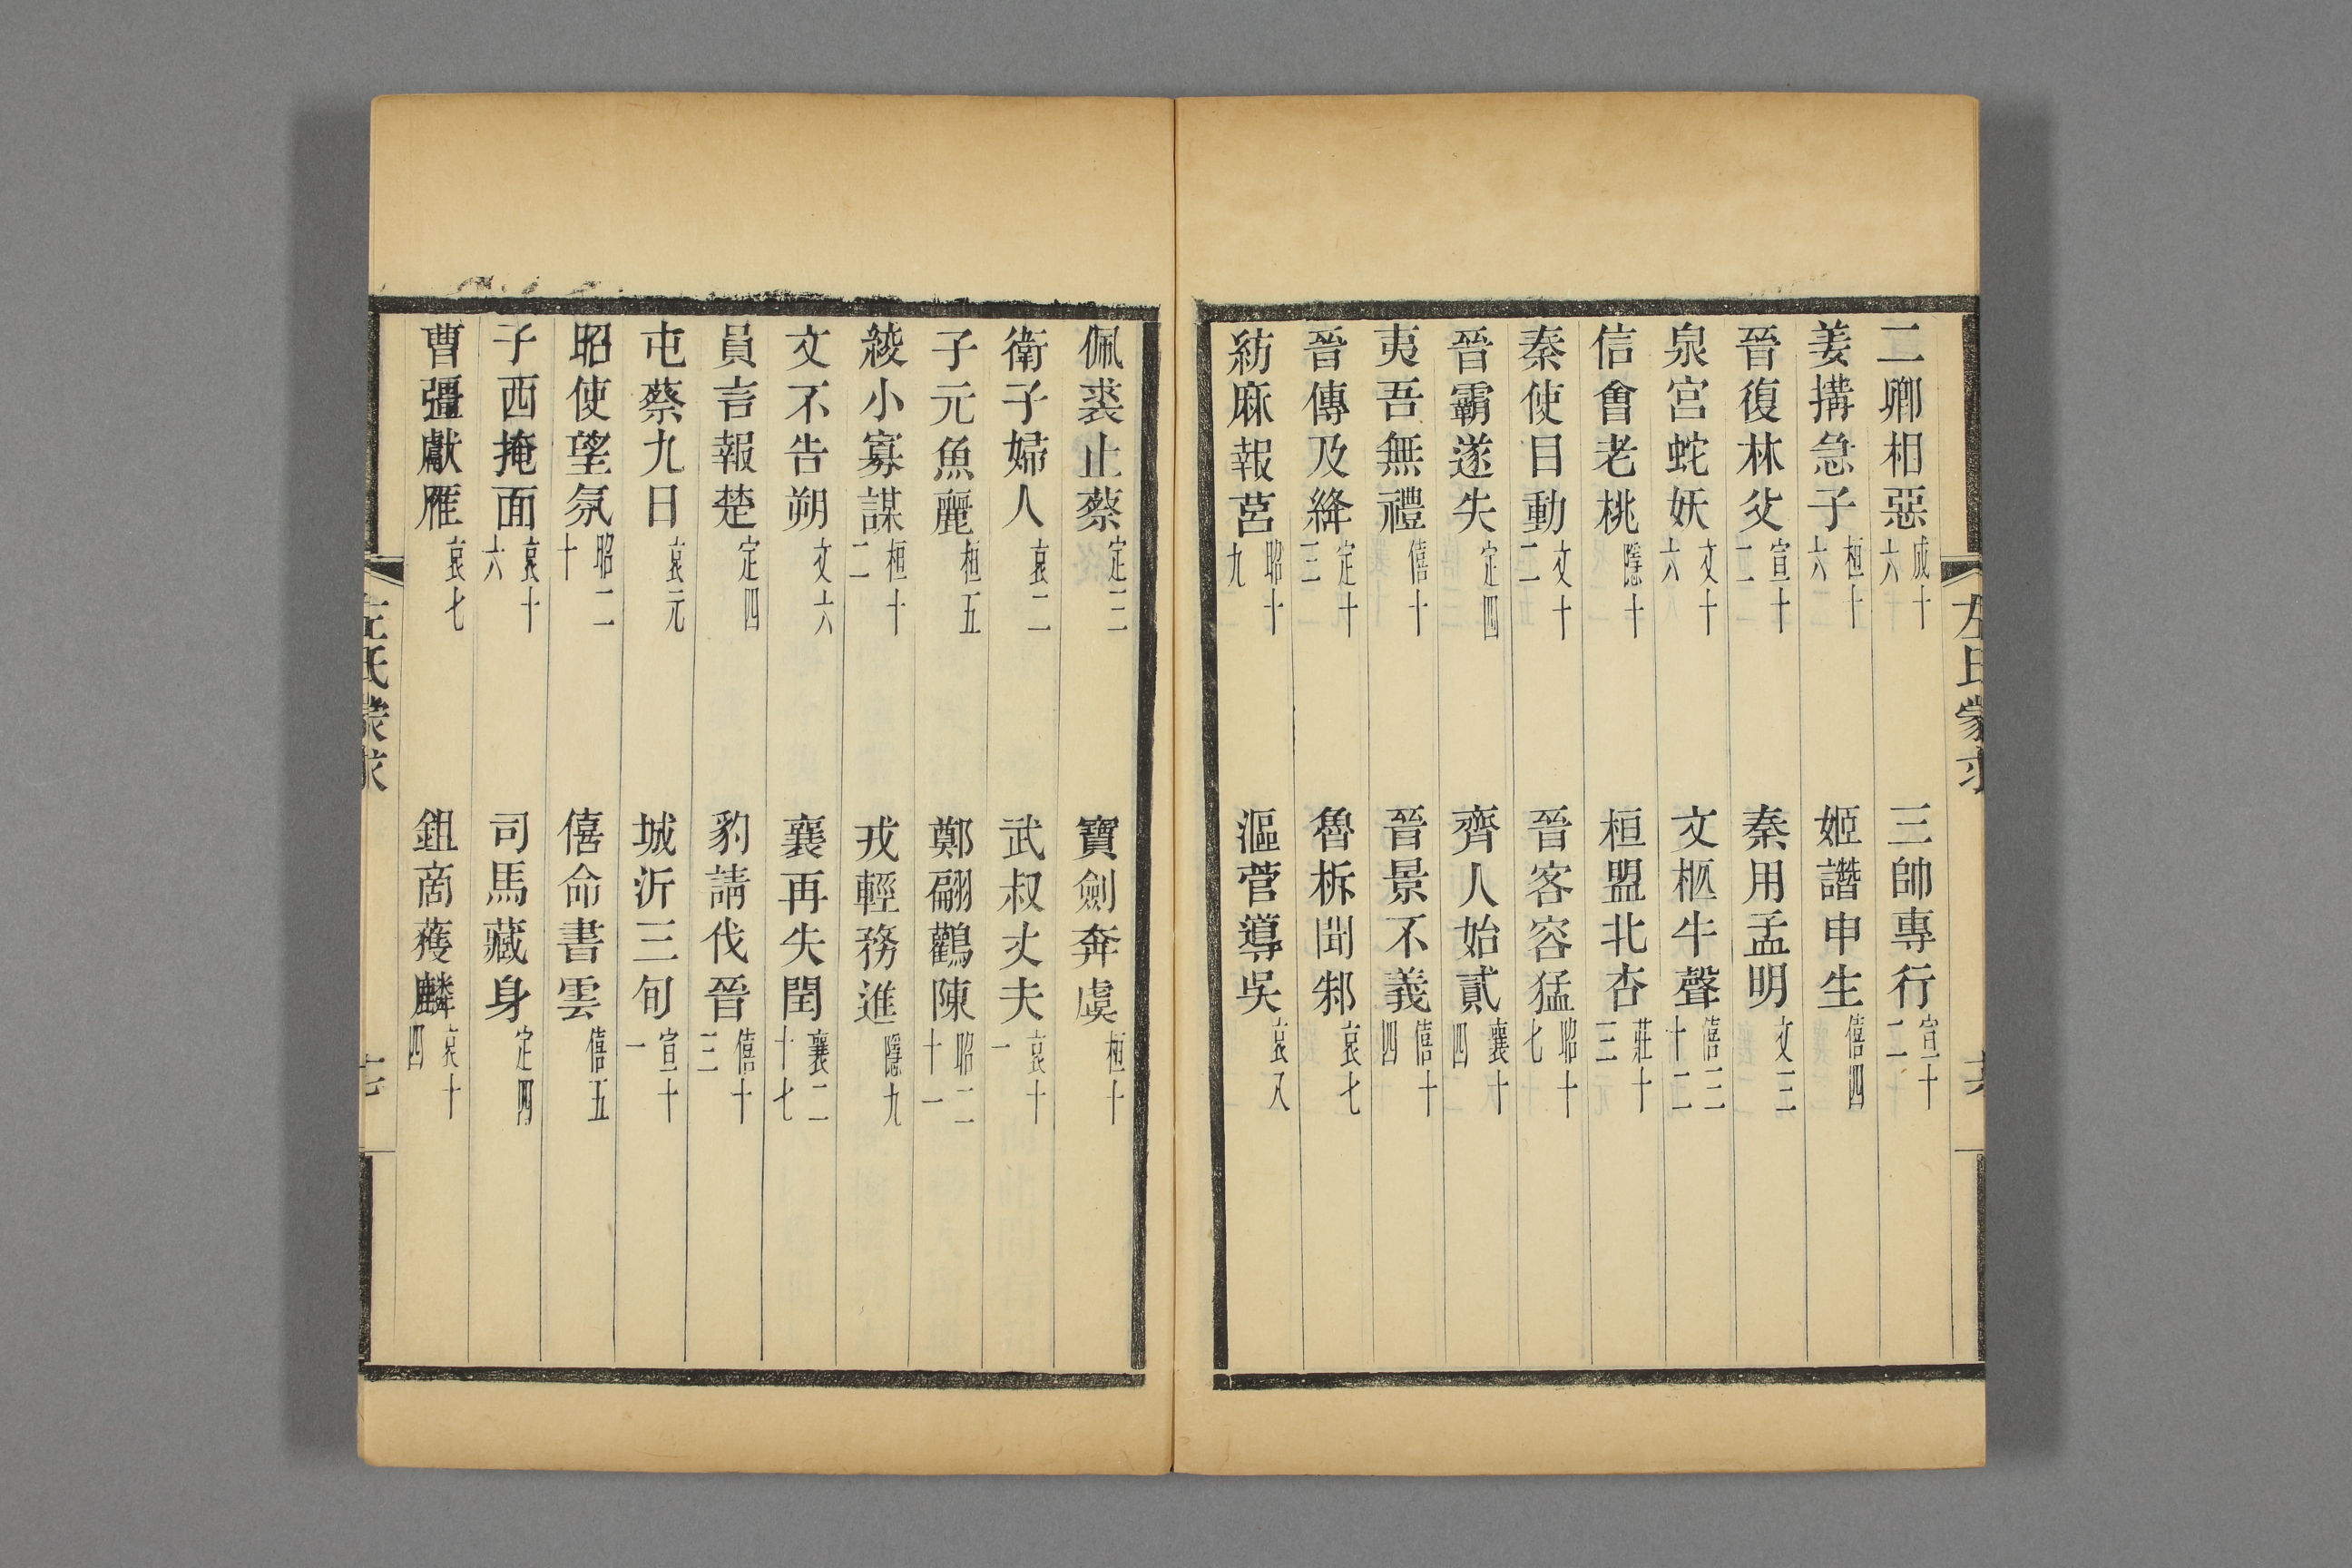 二卿相惡成十六　三帥專行宣十二
姜搆急子桓十六　姬譖申生僖四
晉復林父宣十二　秦用孟明文三
泉宮蛇妖文十六　文柩牛聲僖三十二
信會老桃隱十　桓盟北杏莊十三
秦使目動文十二　晉客容猛昭十七
晉霸遂失定四　齊人始貳襄十四
夷吾無禮僖十　晉景不義僖十四
晉傳及絳定十三　魯柝聞邾哀七
紡麻報莒昭十九　漚菅導吳哀八
佩裘止蔡定三　寶劍奔虞桓十
衛子婦人哀二　武叔丈夫哀十一
子元魚麗桓五　鄭翩鸛陳昭二十一
綾小寡謀桓十二　戎輕務進隱九
文不告朔文六　襄再失閏襄二十七
員言報楚定四　豹請伐晉僖十三
屯蔡九日哀元　城沂三旬宣十一
昭使望氛昭二十　僖命書雲僖五
子西掩面哀十六　司馬藏身定四
曹彊獻雁哀七　鉏商獲麟哀十四
左氏蒙求